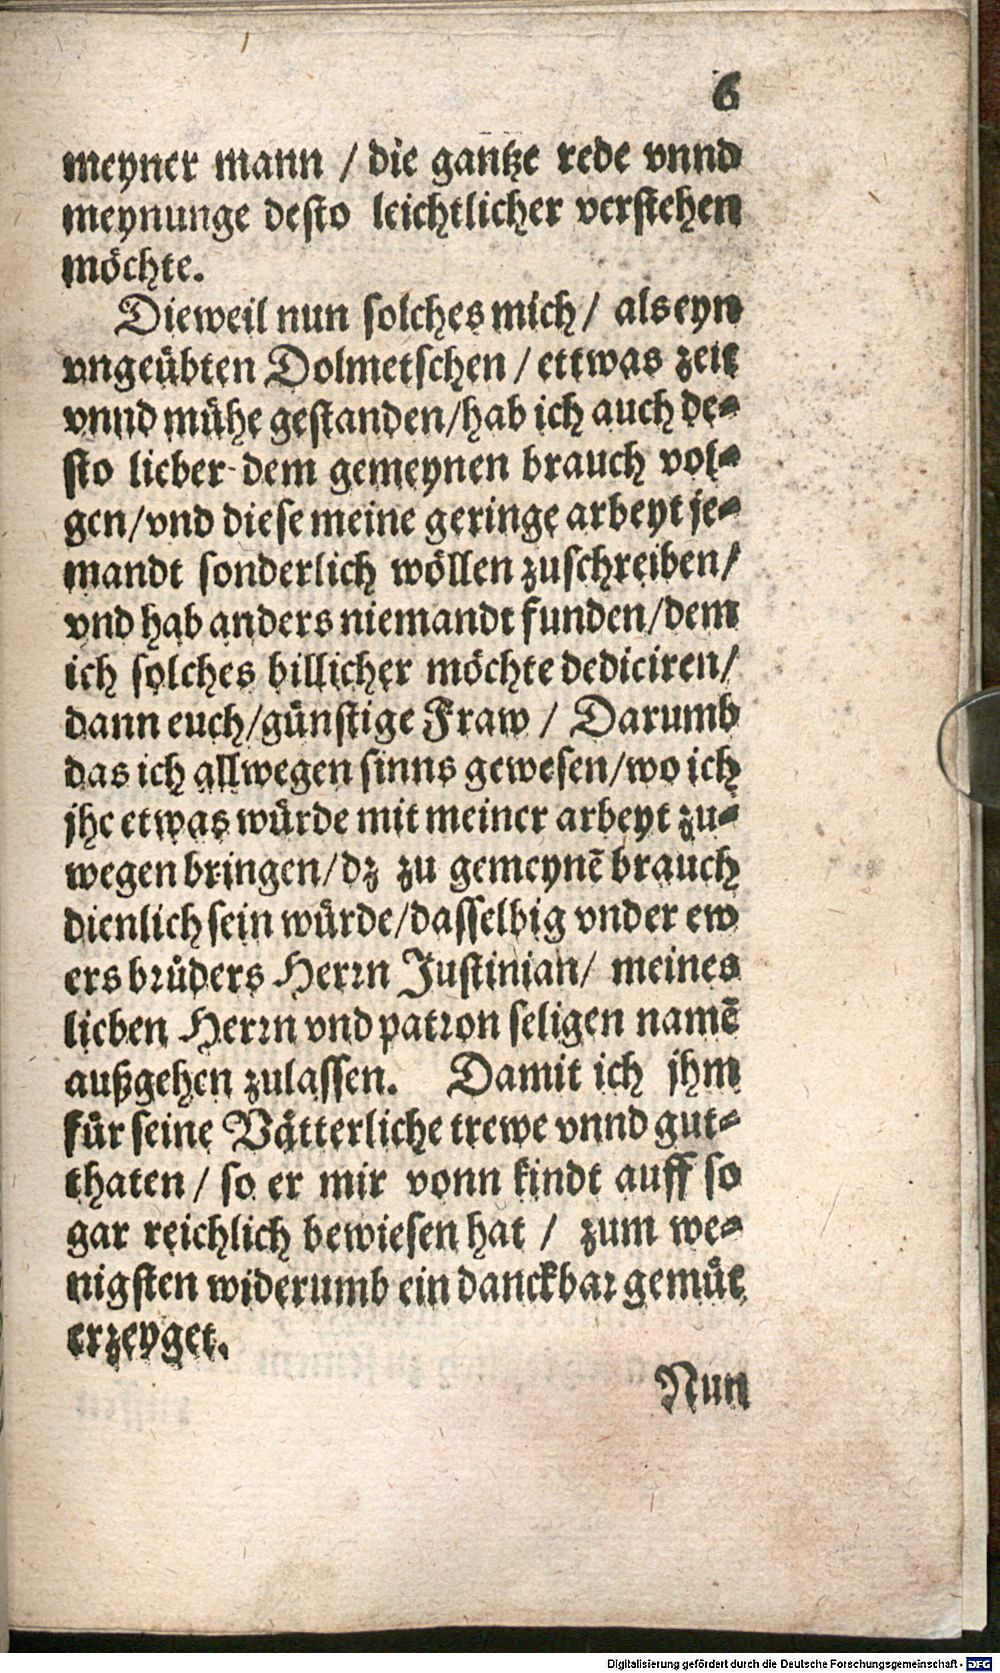 6
meyner mann / die gantze rede vnnd
meynunge desto leichtlicher verstehen
möchte.
Dieweil nun solches mich / als eyn
vngeübten Dolmetschen / ettwas zeit
vnnd mühe gestanden / hab ich auch de⸗
sto lieber dem gemeynen brauch vol⸗
gen / vnd diese meine geringe arbeyt je⸗
mandt sonderlich wöllen zuschreiben /
vnd hab anders niemandt funden / dem
ich solches billicher möchte dediciren /
dann euch / günstige Fraw / Darumb
das ich allwegen sinns gewesen / wo ich
jhe etwas würde mit meiner arbeyt zu⸗
wegen bringen / dz zu gemeynē brauch
dienlich sein würde / dasselbig vnder ew
ers brůders Herrn Justinian / meines
lieben Herrn vnd patron seligen namē
außgehen zulassen. Damit ich jhm
für seine Vätterliche trewe vnnd gut⸗
thaten / so er mir vonn kindt auff so
gar reichlich bewiesen hat / zum we⸗
nigsten widerumb ein danckbar gemüt
erzeyget.
Nun
Digitalisierung gefördert durch die Deutsche Forschungsgemeinschaft - DFG